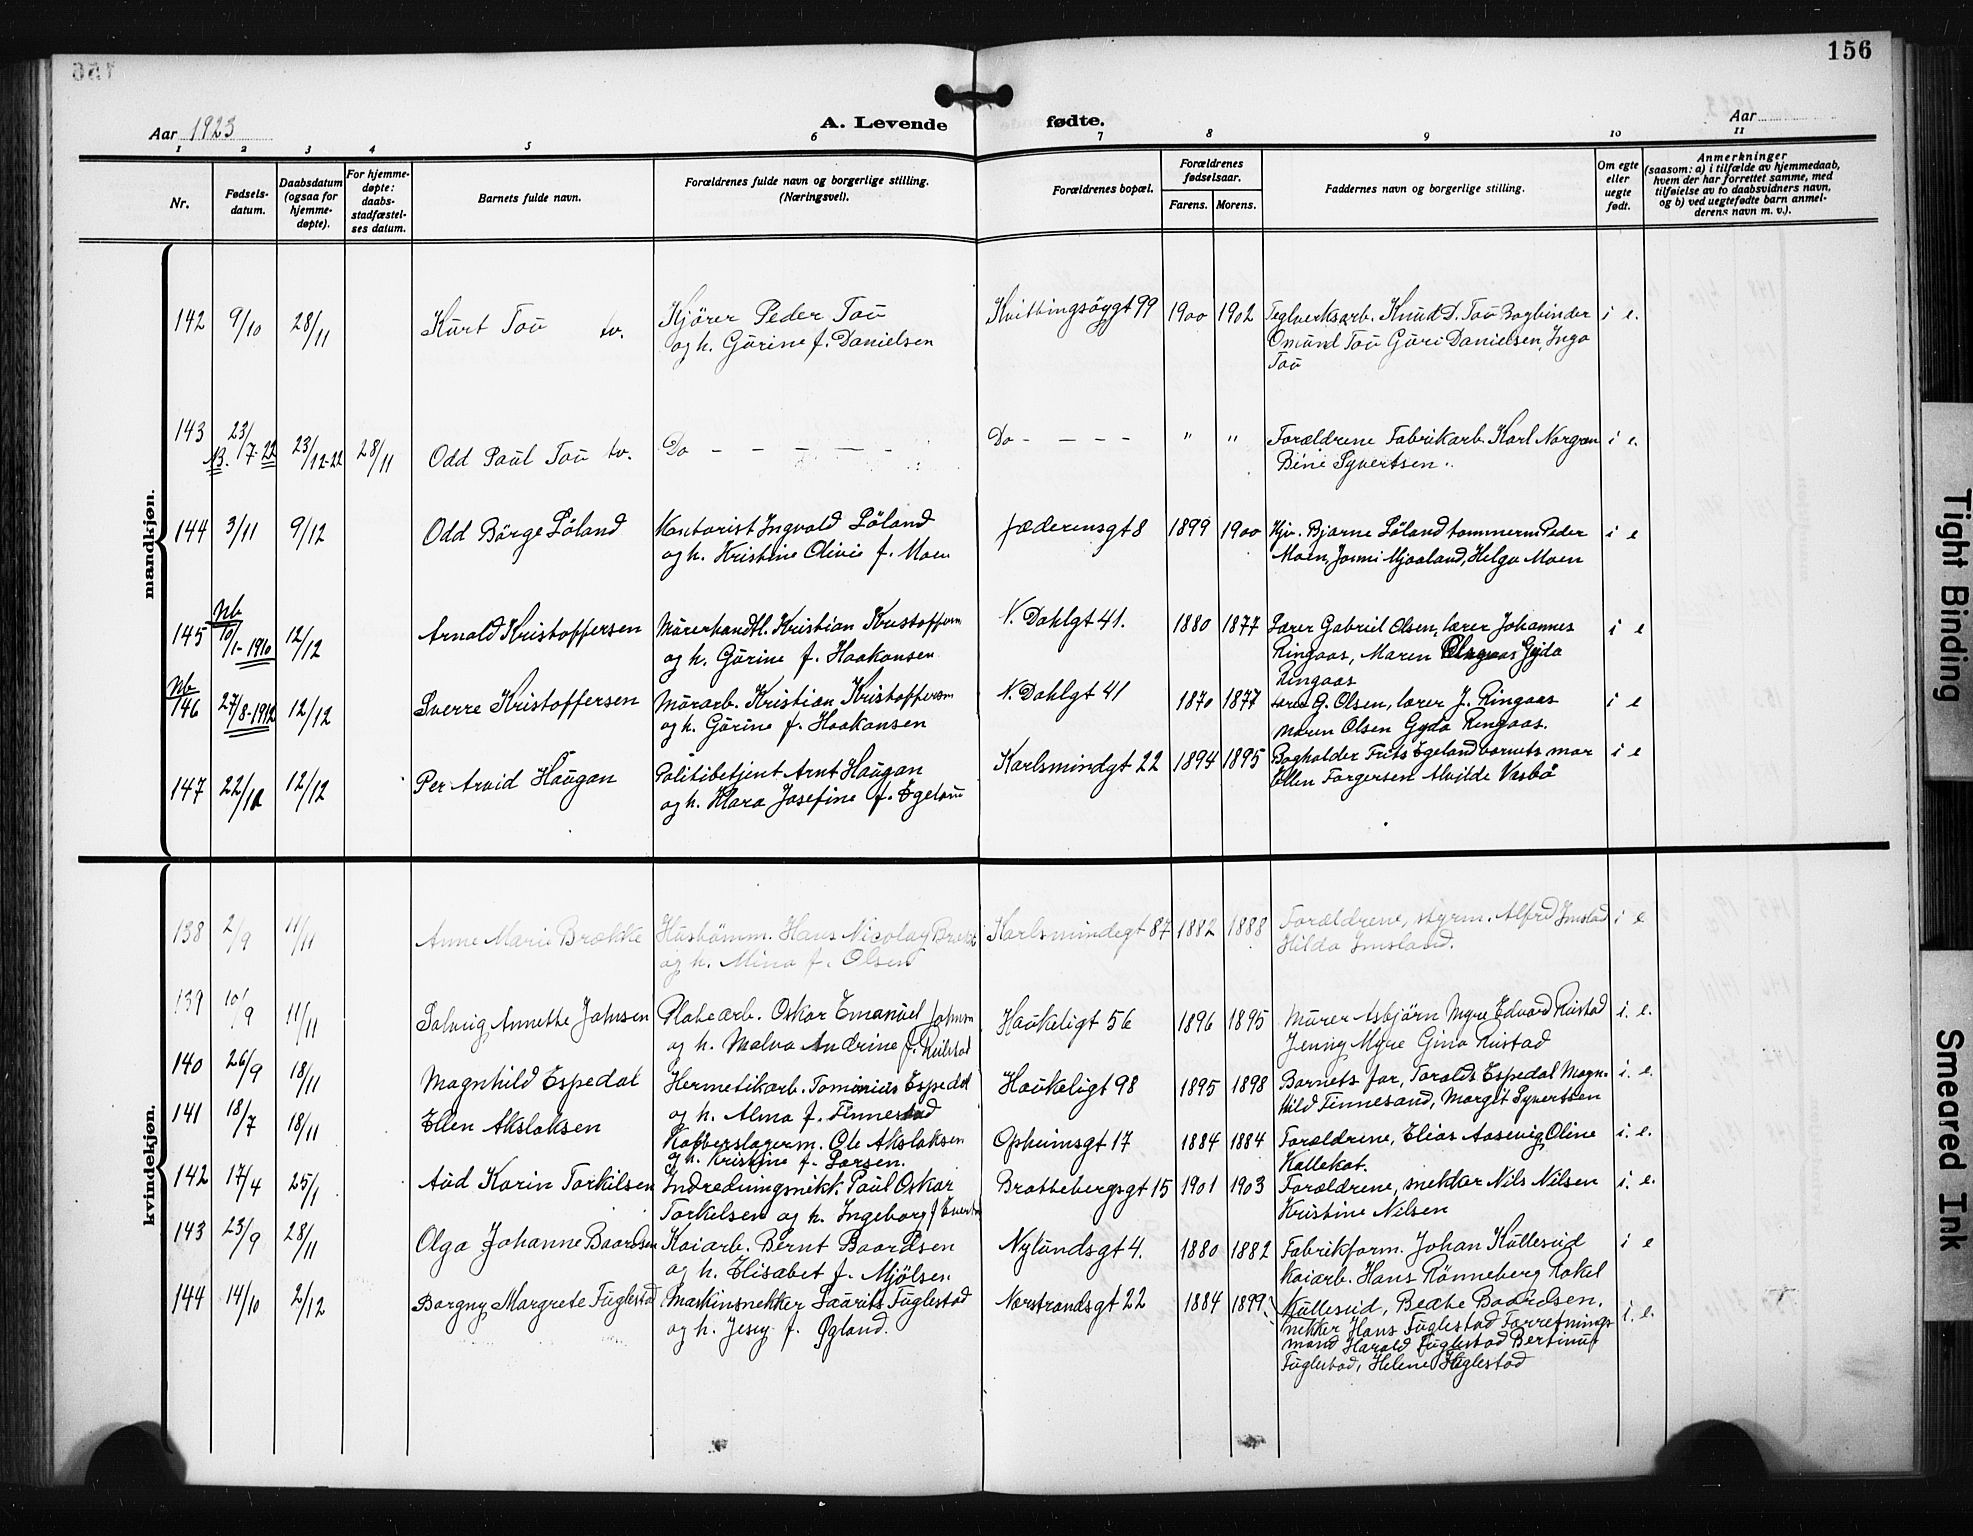 156
Aar 1923
A. Levende fødte.
Aar
1 2 3 4 5 6 7 8 9 10 11
Nr.
Fødsels-
datum.
Daabsdatum
(ogsaa for
hjemme-
døpte).
For hjemme-
døpte:
daabs-
stadfæstel-
ses datum.
Barnets fulde navn.
Forældrenes fulde navn og borgerlige stilling.
(Næringsvei).
Forældrenes bopæl.
Forældrenes
fødselsaar.
Farens. Morens.
Faddernes navn og borgerlige stilling.
Om egte
eller
uegte
født.
Anmerkninger
(saasom: a) i tilfælde av hjemmedaab,
hvem der har forrettet samme, med
tilføielse av to daabsvidners navn,
og b) ved uegtefødte barn anmel-
derens navn m. v.).
mandkjøn.
142 9/10 28/11 Kurt Tou tv. Kjörer Peder Tou Kvitbingsöygt 99 1900 1902 Teglverksarb. Knud D. Tou Bogbinder i e.
og h. Gurine f. Danielsen Omund Tou Guri Danielsen, Inga
Tou
143 23/7-22 23/12-22 28/11 Odd Paul Tou tv. Do - - - - - Do - - - - " " Forældrene Fabrikarb. Karl Norgren i e.
NB. Bine Syvertsen.
144 3/11 9/12 Odd Börge Löland Kontorist Ingvald Löland Jæderensgt 8 1899 1900 Kjv. Bjarne Löland tömmerm Peder i e
og h. Kristine Olivie f. Moen Moen, Jonni Mjaaland, Helga Moen
Nb
145 10/1-1910 12/12 Arnold Kristoffersen Mürerhandtl. Kristian Kristoffersen N. Dahlgt 41. 1880 1877 Lærer Gabriel Olsen, lærer Johannes i e
og h. Gurine f. Haakonsen Ringaas, Maren Gyda
Ringaas
Nb
146 27/8-1912 12/12 Sverre Kristoffersen Mürarb. Kristian Kristoffersen N. Dahlgt 41 1870 1877 Lærer G. Olsen, lærer J. Ringaas i e
og h. Gurine f. Haakonsen Maren Olsen Gyda Ringaas.
147 22/10 12/12 Per Arvid Haugan Politibetjent Arnt Haugan Karlsmindgt 22 1894 1895 Bogholder Frits Egeland barnets mor i e
og h. Klara Josefine f. Egeland Ellen Torgersen Alvilde Vasbö
kvindekjøn.
138 2/9 11/11 Anne Marie Brekke Husbömm. Hans Nicolay Brekke Karlsmindegt 87 1882 1888 Forældrene, styrm. Alfred Imsland i e
og h. Mina f. Olsen Hilda Imsland.
139 10/9 11/11 Solveig Annette Johnsen Platearb. Oskar Emanuel Johnsen Haukeligt 56 1896 1895 Murer Asbjörn Myre Edvard Rustad i. e.
og h. Malva Andrine f. Jenny Myre Gina Rustad
140 26/9 18/11 Magnhild Espedal Hermetikarb. Tominius Espedal Haukeligt 98 1895 1898 Barnets far, Toralds Espedal Magn- i. e.
og h. Alma f. Finnesand hild Finnesand, Margit Syvertsen
141 18/7 18/11 Ellen Akslaksen Kobberslagerm. Ole Akslaksen Opheimsgt 17 1884 1884 Forældrene, Elias Aasevig Oline i. e.
og h. Kristine f. Larsen. Kallekot.
142 17/4 25/1 Aud Karin Torkilsen Indredningsnikk. Paul Oskar Brattebergsgt 15 1901 1903 Forældrene, snekker Nils Nilsen i. e.
Torkelsen og h. Ingeborg f Evertsen Kristine Nilsen
143 23/9 28/11 Olga Johanne Baardsen Kaiarb. Bernt Baardsen Nylundsgt 4. 1880 1882 Fabrikform. Johan Kullesüd i e
og h. Elisabet f. Mjölsen Kaiarb. Hans Rönneberg Rakel
Kullesüd, Beate Baardsen.
144 14/10 2/12 Borgny Margrete Fuglestad Maskinsnekker Laurits Fuglestad Norstrandsgt 22 1884 1899 snekker Hans Fuglestad Forretnings- i. e.
og h. Jesey f. Øgland. mand Harald Fuglestad Bertinus
Fuglestad, Helene Fuglestad
Tight Binding
Smeared Ink